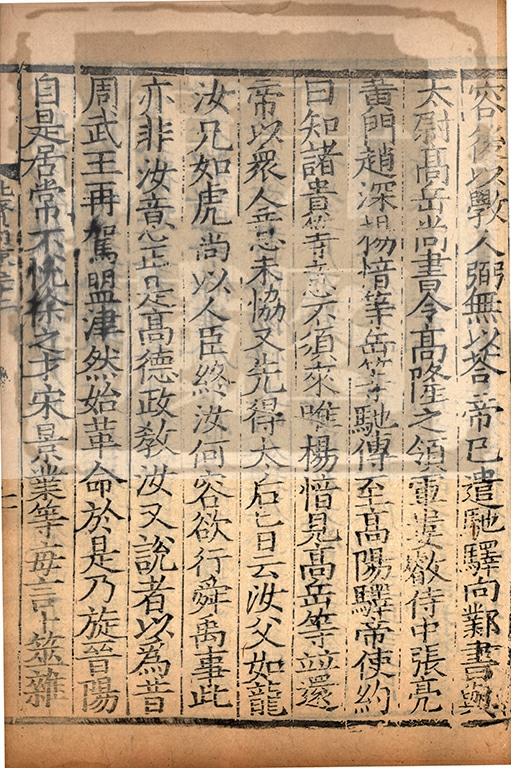 容後以斅人弼無以荅帝已遣馳驛向鄴書與
太尉高岳尚書令高隆之領軍婁叡侍中張亮
黄門趙深楊愔等岳等馳傳至高陽驛帝使約
曰知諸貴等意不須來唯楊愔見高岳等並還
帝以衆人意未恊又先得太后旨云汝父如龍
汝兄如虎尚以人臣終汝何容欲行舜禹事此
亦非汝意正是高德政教汝又說者以為昔
周武王再駕盟津然始革命於是乃旋晉陽
自是居常不悅徐之才宋景業等每言卜筮雜